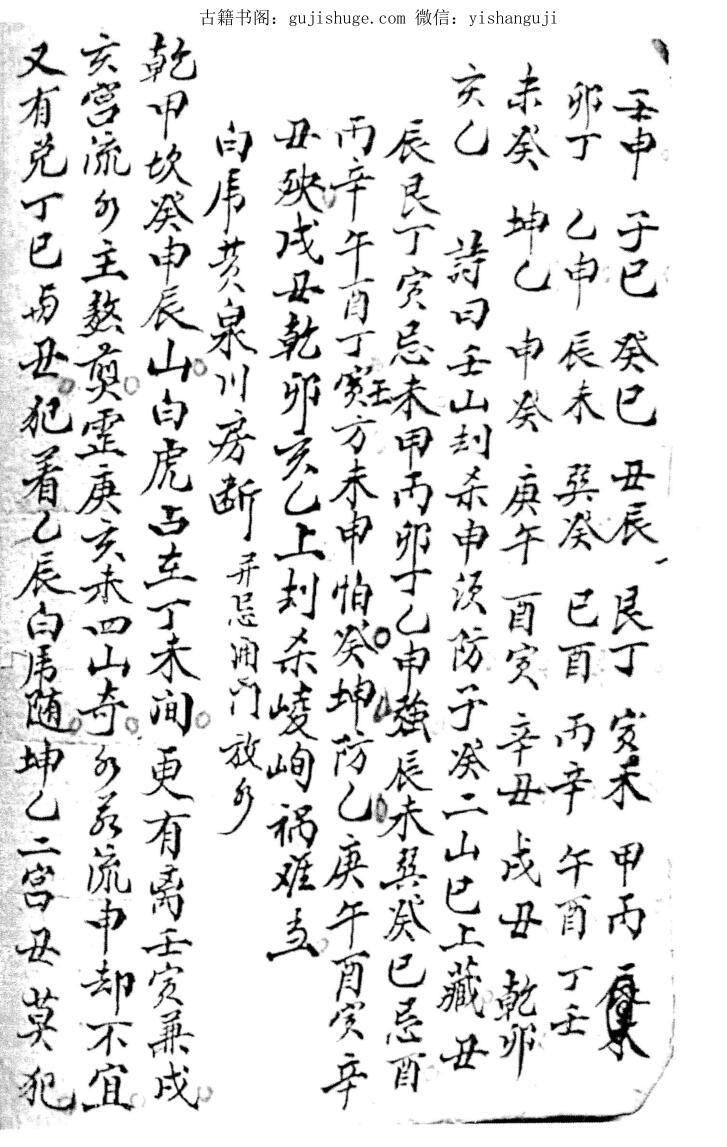 古籍书阁：gujishuge.com 微信：yishanguji
壬申 子巳 癸巳 丑辰 艮丁 寅未 甲丙
卯丁 乙申 辰未 巽癸 巳酉 丙辛 午酉 丁壬
未癸 坤乙 申癸 庚午 酉寅 辛丑 戌丑 乾卯
亥乙
詩曰壬山刦杀申须防子癸二山巳上藏丑
辰艮丁寅忌未甲丙卯丁乙申強辰未巽癸巳忌酉
丙辛午酉丁寅壬方未申怕癸坤防乙庚午酉寅辛
丑殃戌丑乾卯亥乙上刦杀崚峋祸难当
白虎黄泉川房断 并忌开门放水
乾甲坎癸申辰山白虎占在丁未间更有离壬寅兼戌
亥宫流水主熬煎震庚亥未四山奇水若流申却不宜
又有兑丁巳与丑犯着乙辰白虎随坤乙二宫丑莫犯